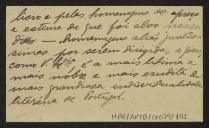 livro e pelas homenagens de apreço
e estima de que foi alvo nesse
dia — homenagens aliás justis-
simas por serem dirigidas a quem
como V. Exª é a mais lidima e
mais nobre e mais erudita e
mais grandiosa individualidade
literária de Portugal.
MPR/APTB/C1079/101